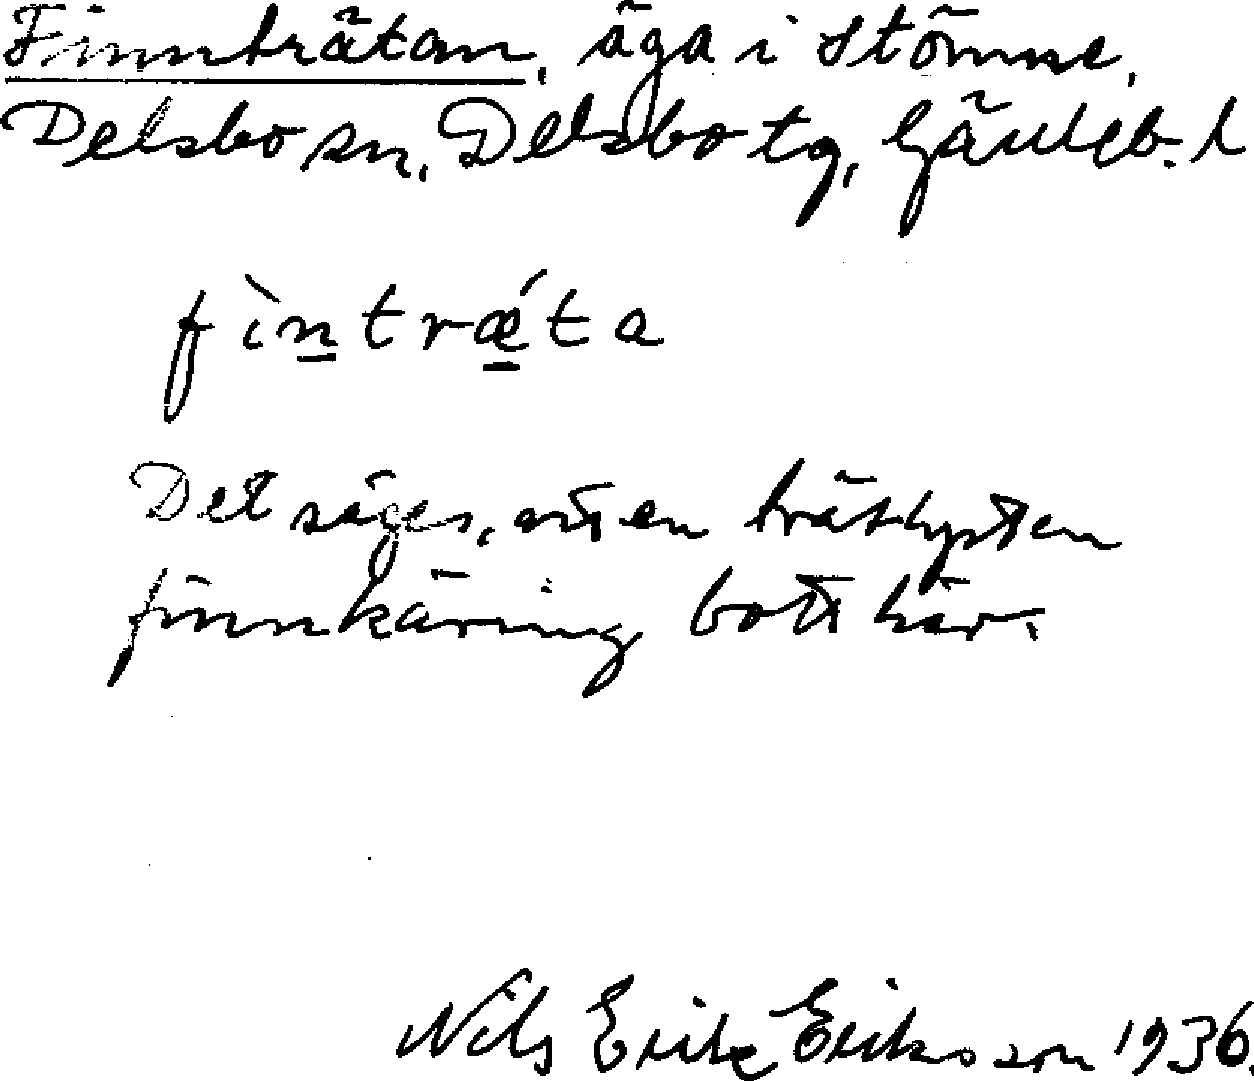 Finnträtan, äga i Stömne,
Delsbo sn, Delsbo tg, Gävleb. l
fìn̲trǽ̲ta
Det säges, att en trätlysten
finnkäring bott här.
Nils Erik Eriksson 1936.